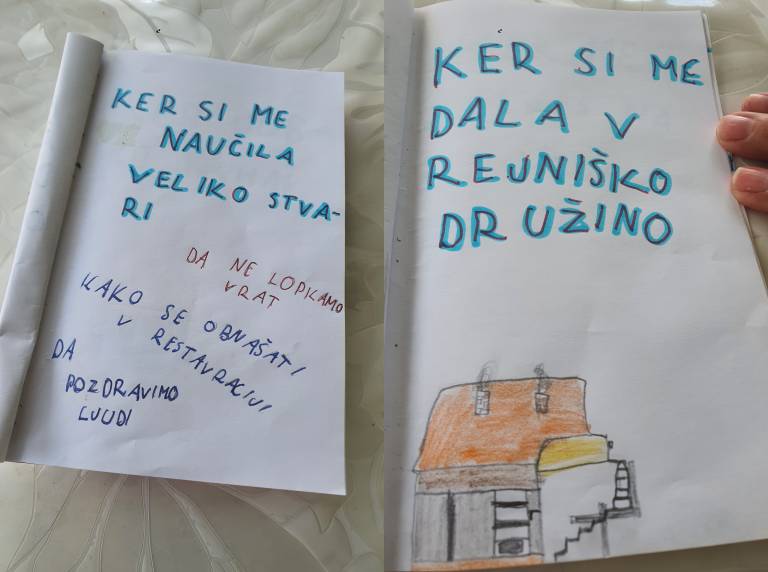 KER SI ME
NAUČILA
VELIKO STVA-
RI
DA NE LOPKAMO
VRAT
KAKO SE OBNAŠATI
V RESTAVRACIJI
DA
POZDRAVIMO
LJUDI
KER SI ME
DALA V
REJNIŠKO
DRUŽINO